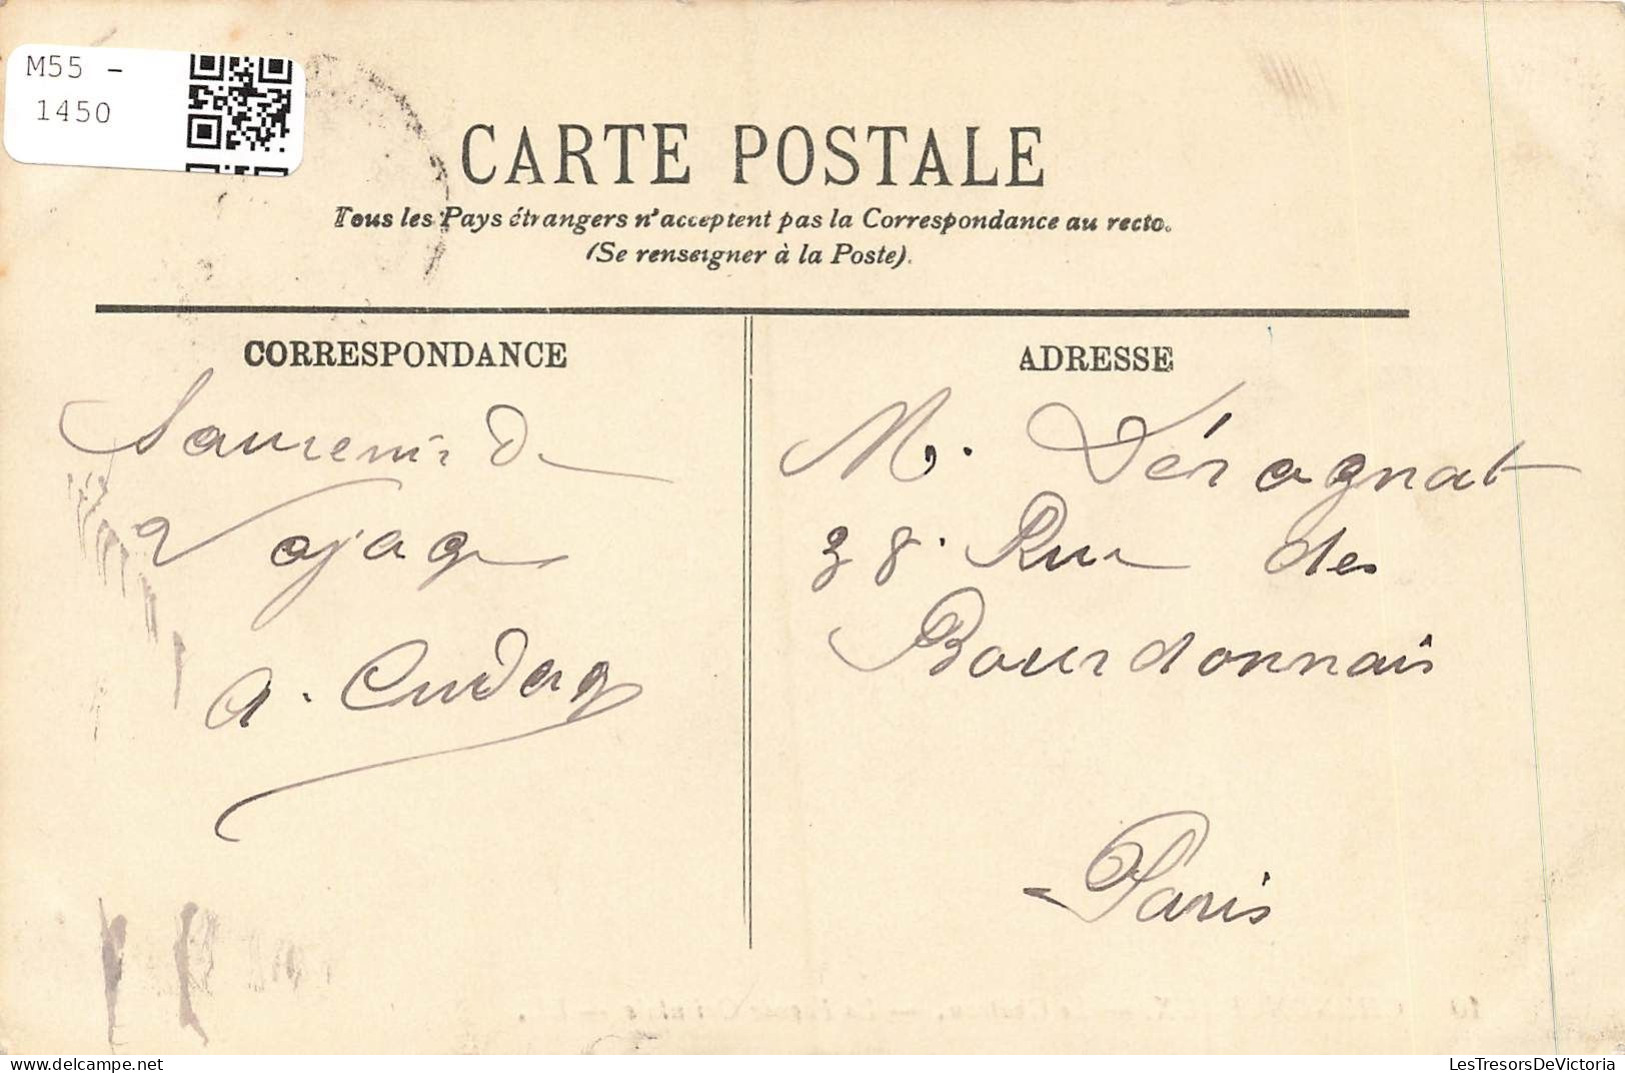 M55 -
1450
CARTE POSTALE
Tous les Pays étrangers n'acceptent pas la Correspondance au recto.
(Se renseigner à la Poste).
CORRESPONDANCE
ADRESSE
Souvenir De
Voyage
M. Déragnat
38. Rue des
Bourdonnais
Paris
LesTresorsDeVictoria